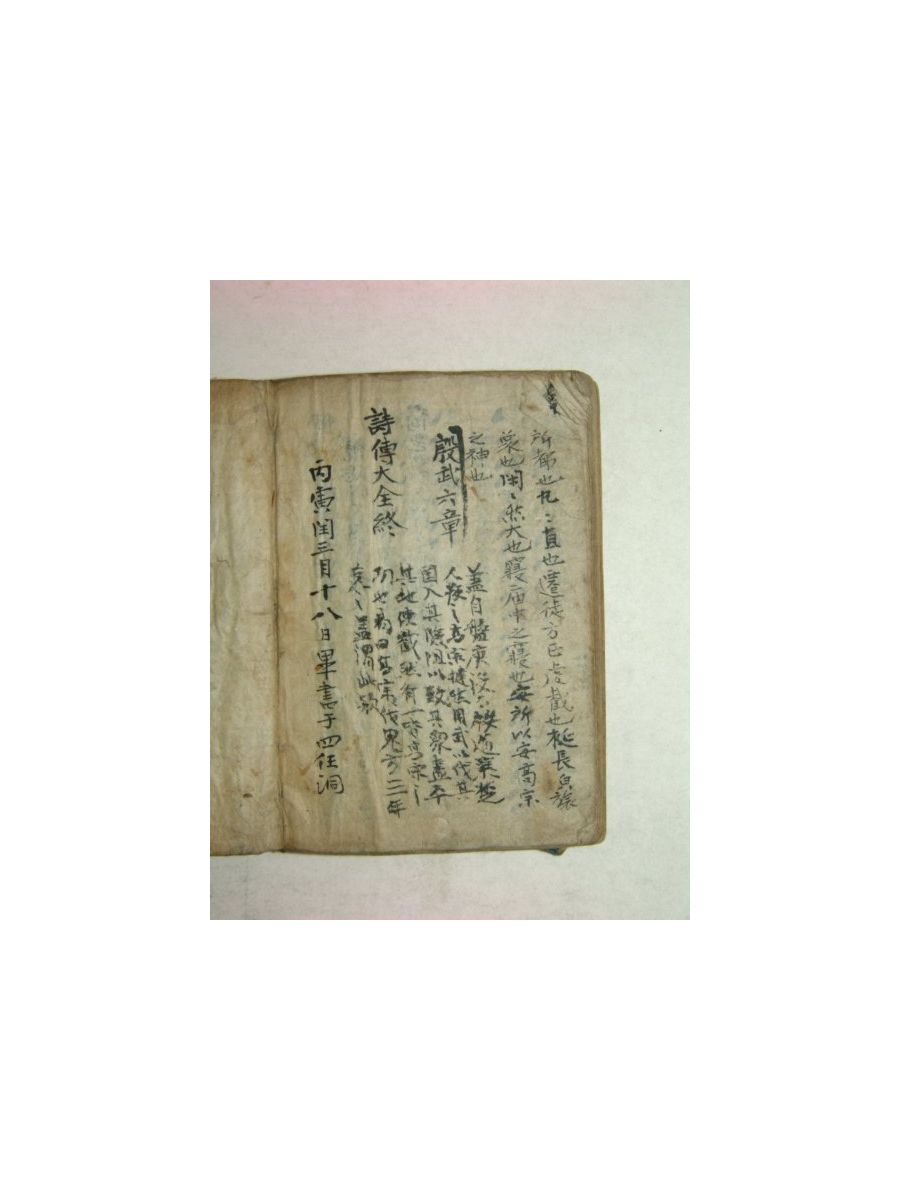 所都也丸〻直也遷徙方正虔截也梴長皃旅
衆也閑〻然大也寢庙中之寢也安所以安高宗
之神也
殷武六章
蓋自盤庚沒而殷道衰楚
人叛之高宗撻然用武以伐其
國入其險阻以致其衆盡平
其地使截然有一皆高宗之
功也易曰高宗伐鬼方三年
克之蓋謂此歟
詩傳大全終
丙寅閏三月十八日畢書于四任洞